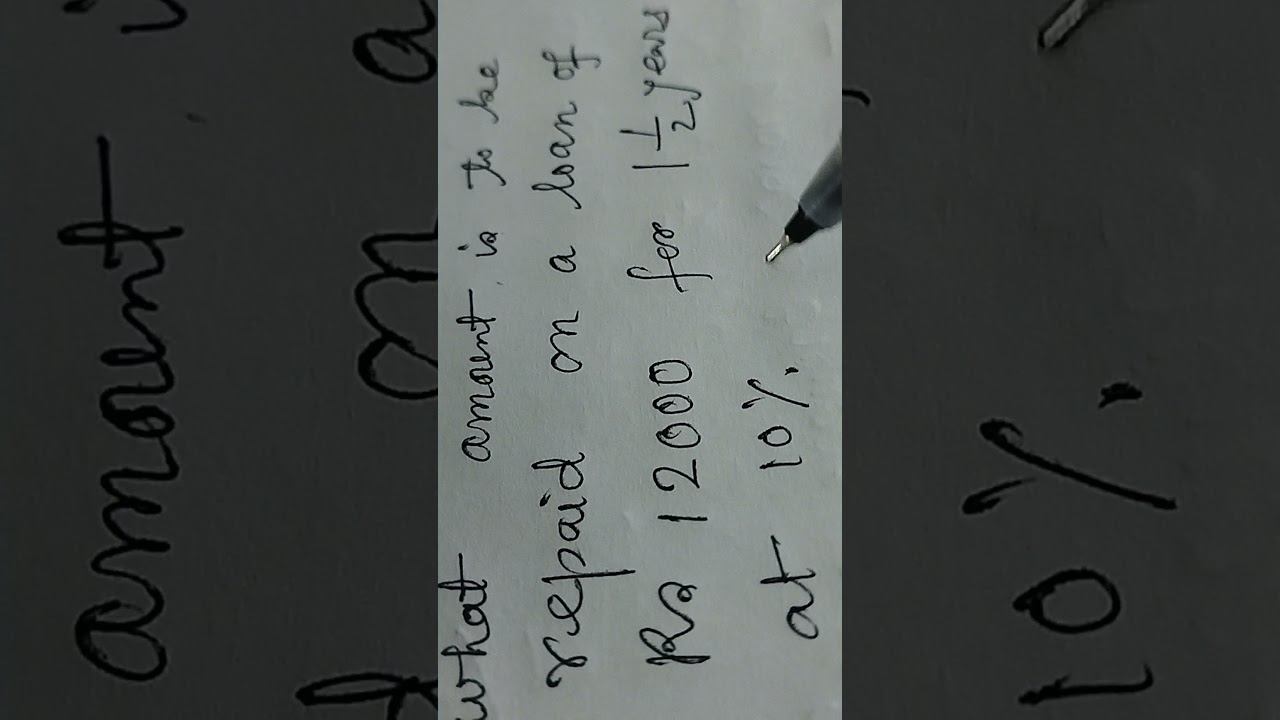 what amount is to be
repaid on a loan of
Rs 12000 for 1 1/2 years
at 10%.